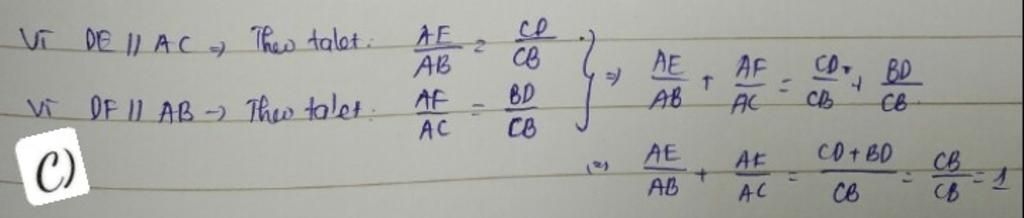 Vì DE // AC => Theo talet: AE/AB = CD/CB
Vì DF // AB -> Theo talet: AF/AC = BD/CB
} => AE/AB + AF/AC = CD/CB + BD/CB
C)
(=) AE/AB + AF/AC = CD + BD/CB = CB/CB = 1